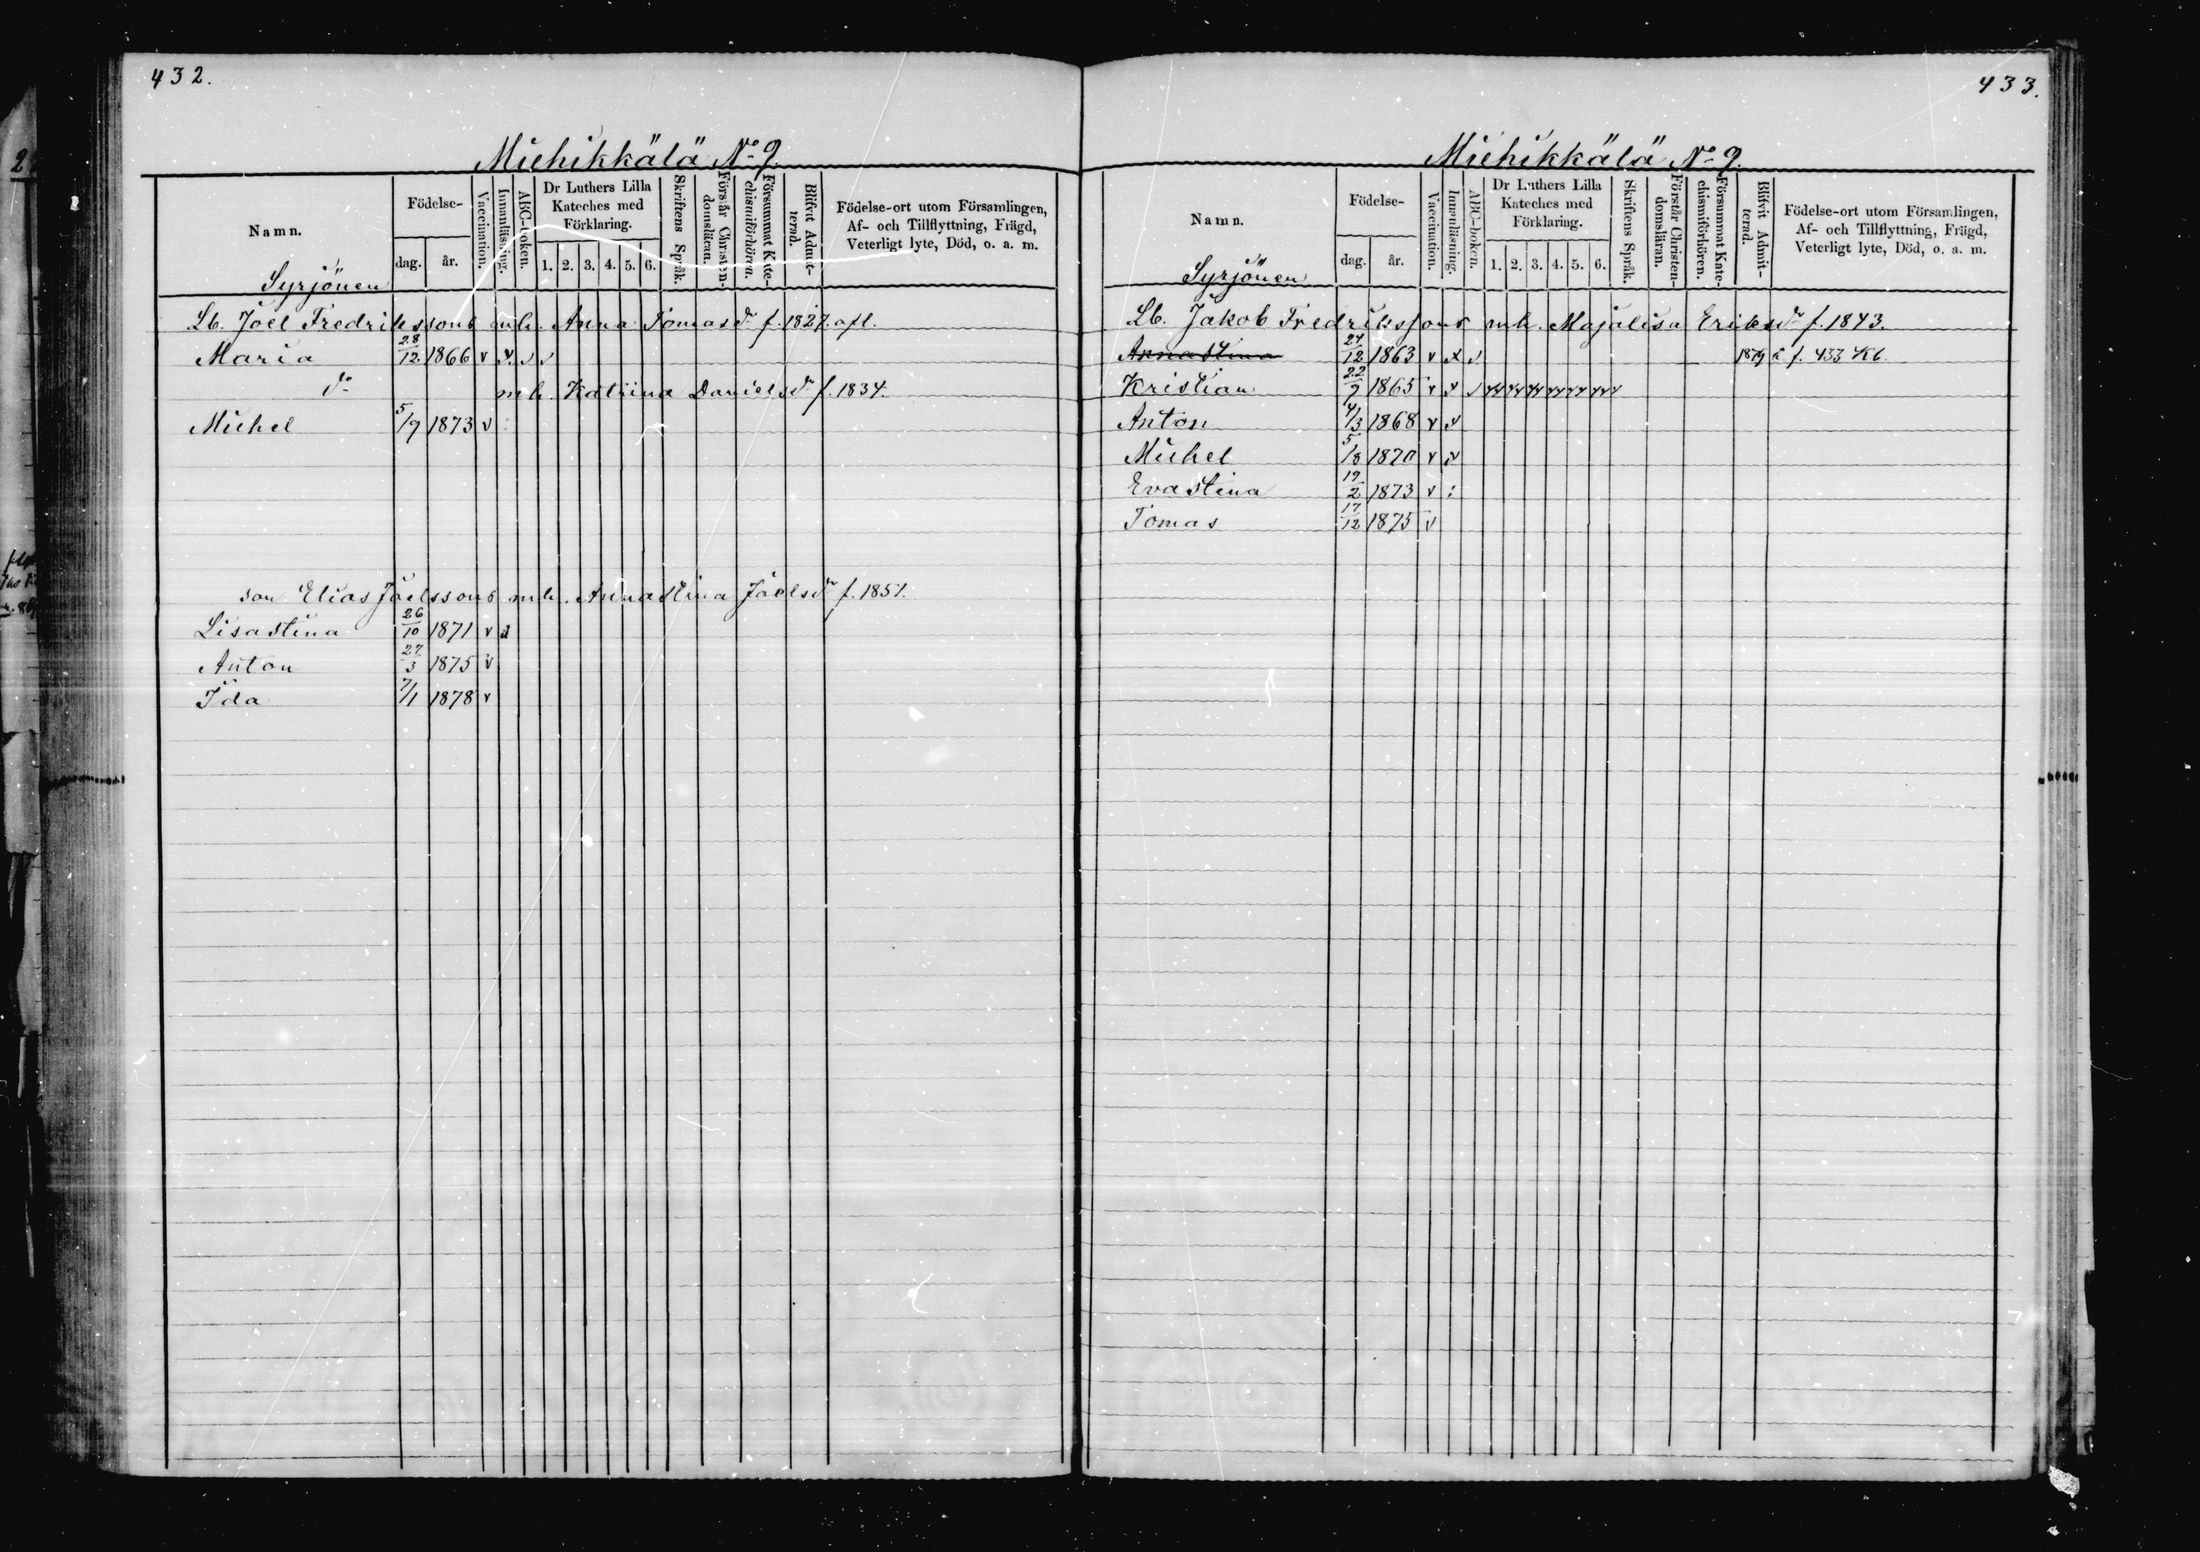 432.
Miehikkälä No 9.
Namn.
Födelse-
dag.
år.
Vaccination.
Innanläsning.
ABC-boken.
Dr Luthers Lilla
Kateches med
Förklaring.
1. 2. 3. 4. 5. 6.
Skriftens Språk.
Förstår Christen-
domsläran.
Försummat Kate-
chismiförhören.
Blifvit Admit-
terad.
Födelse-ort utom Församlingen,
Af- och Tillflyttning, Frägd,
Veterligt lyte, Död, o. a. m.
Syrjönen
Lb. Joel Fredrikssons mh. Anna Tomasdr f. 1827. afl.
Maria 28/12 1866 v v. v v
do mh. Katrina Danielsdr f. 1834.
Michel 5/9 1873 v :
son Elias Joelssons mh. Annastina Joelsdr f. 1851.
Lisastina 26/10 1871 v
Anton 27/3 1875 v
Ida 7/1 1878 v
433.
Miehikkälä No 9.
Namn.
Födelse-
dag.
år.
Vaccination.
Innanläsning.
ABC-boken.
Dr Luthers Lilla
Kateches med
Förklaring.
1. 2. 3. 4. 5. 6.
Skriftens Språk.
Förstår Christen-
domsläran.
Försummat Kate-
chismiförhören.
Blifvit Admit-
terad.
Födelse-ort utom Församlingen,
Af- och Tillflyttning, Frägd,
Veterligt lyte, Död, o. a. m.
Syrjönen
Lb. Jakob Fredrikssons mh. Majalisa Eriksdr f. 1843.
Annastina 24/12 1863 v x v 1879 f. 433 Kb.
Kristian 22/9 1865 v v v
Anton 4/3 1868 v v
Michel 5/8 1870 v v
Evastina 19/2 1873 v :
Tomas 17/12 1875 v